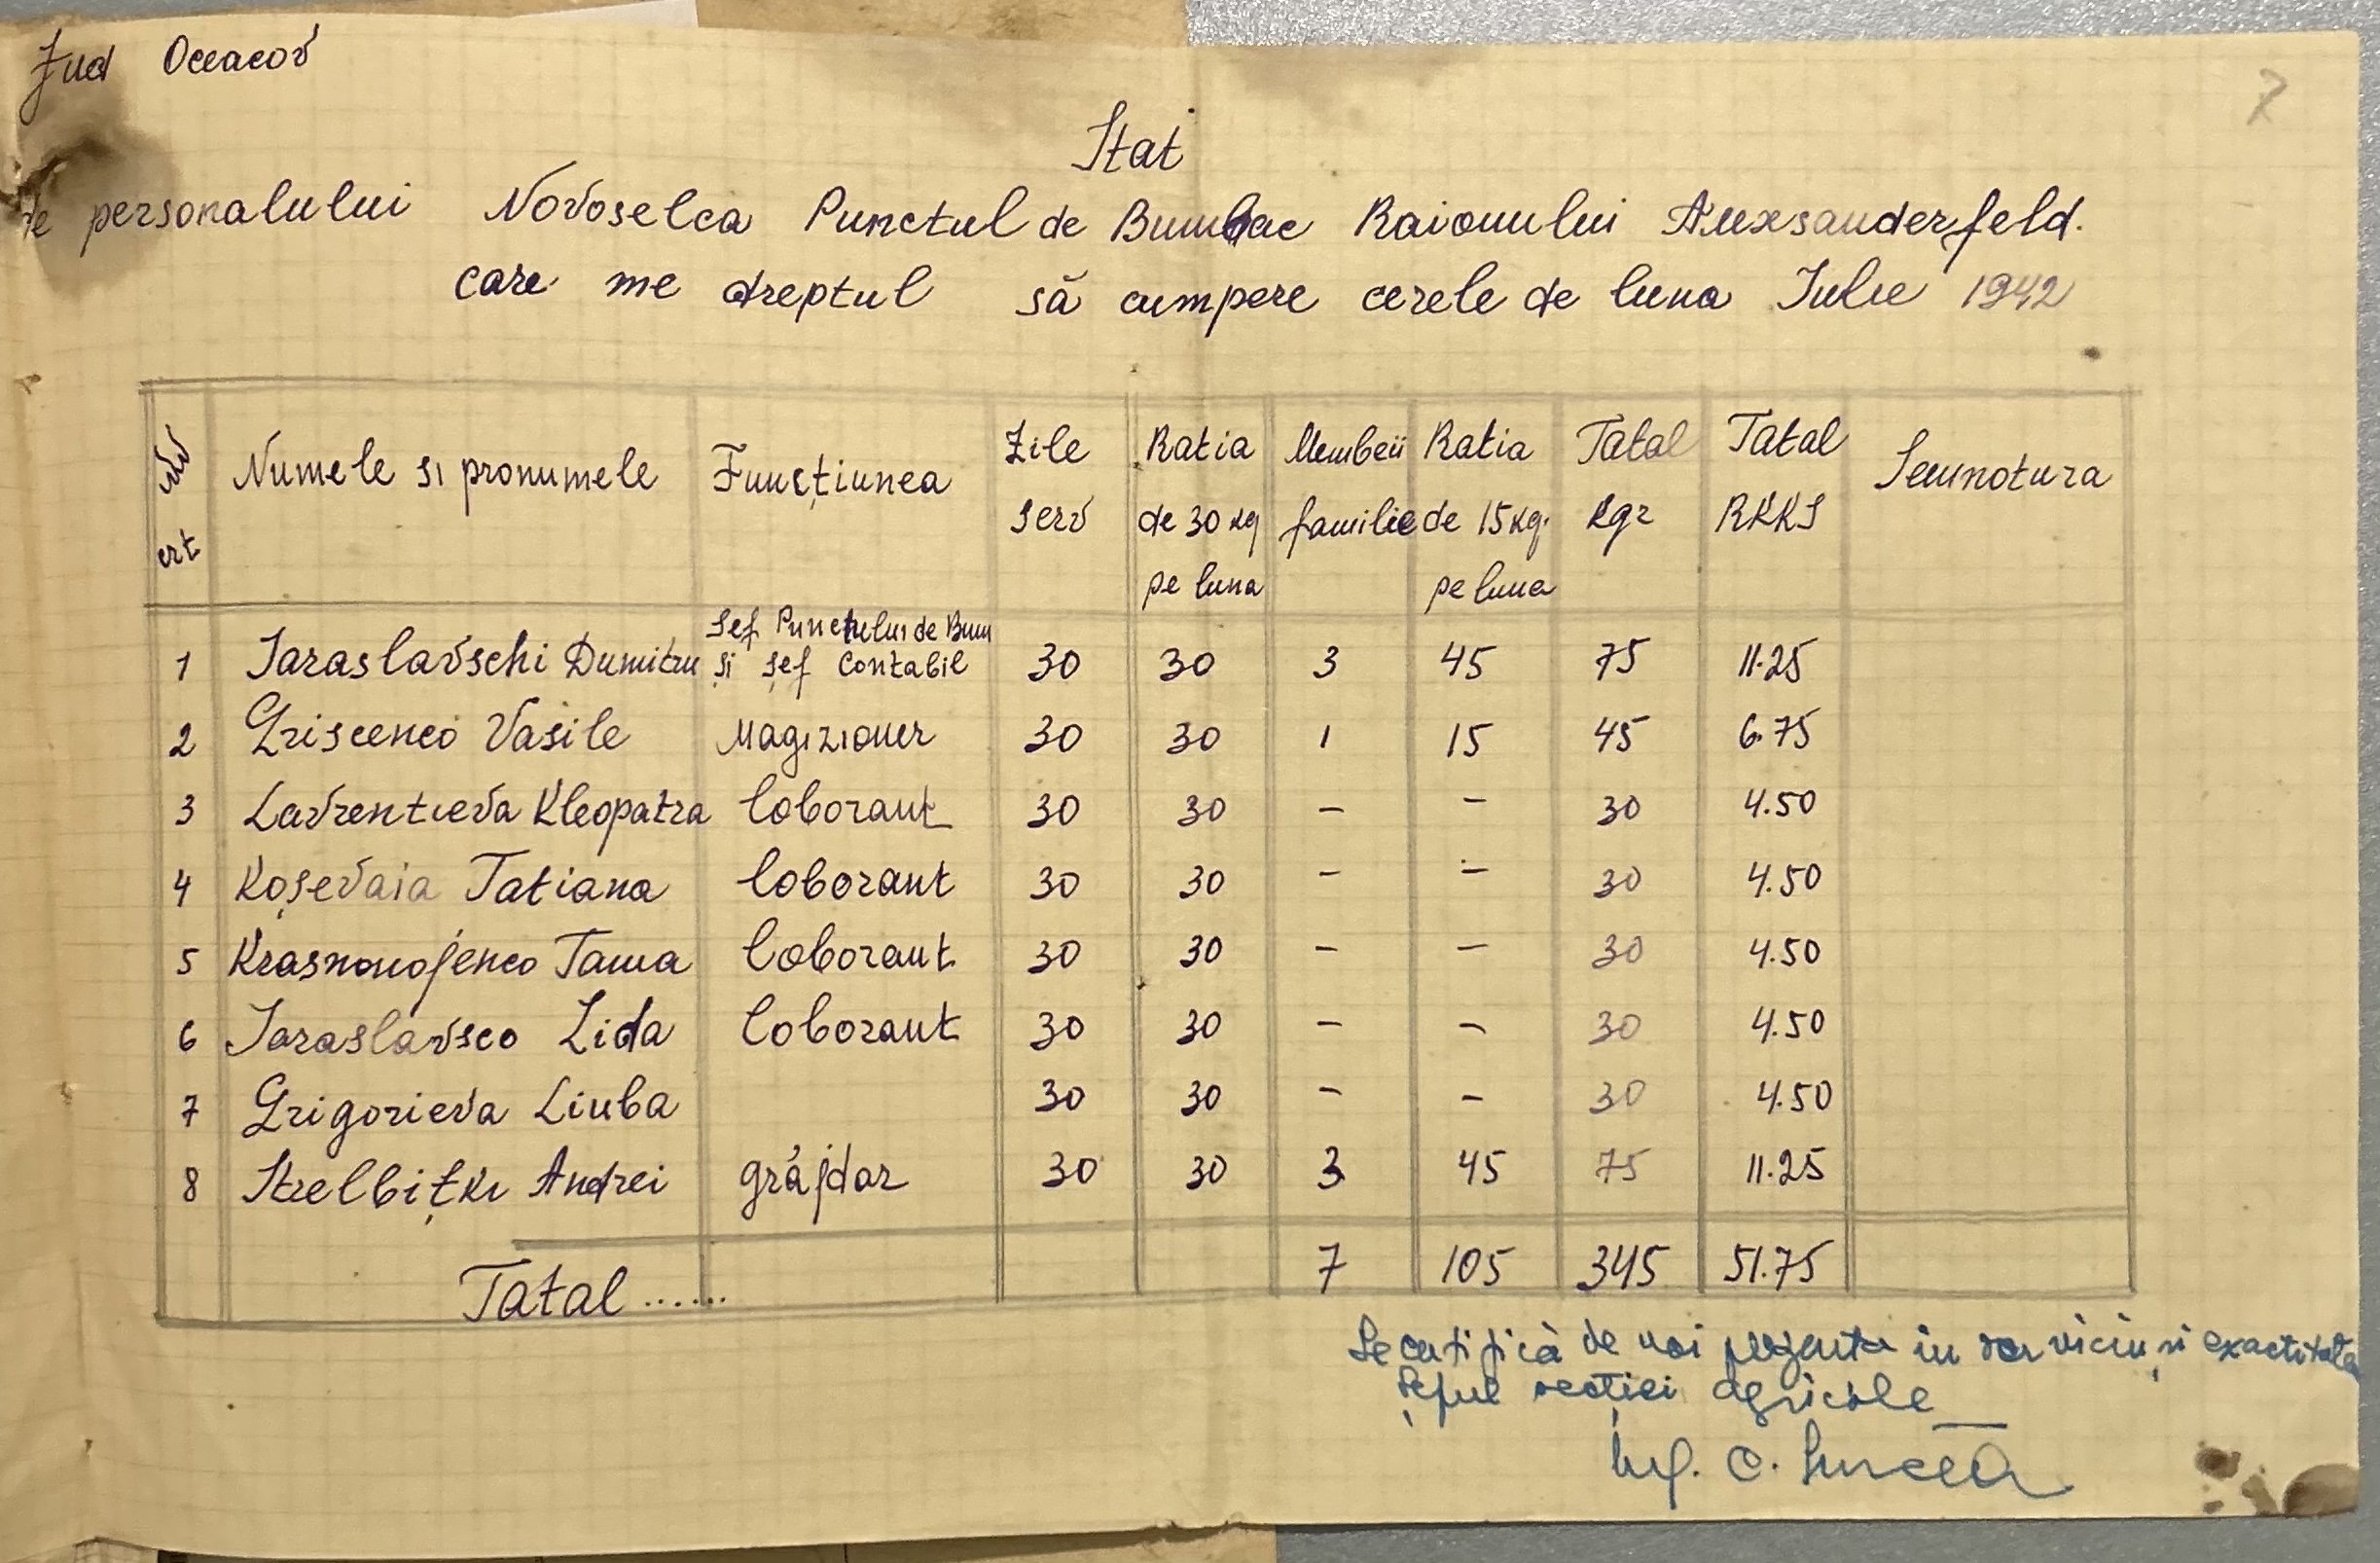 Jud Oceacov
7
Stat
de personalului Novoselca Punctul de Bumbac Raionului Alexsanderfeld.
care me dreptul să cumpere cerele de luna Iulie 1942
Nr crt | Numele si pronumele | Funcțiunea | Zile serv | Ratia de 30 kg pe luna | Membrii familie | Ratia de 15 kg. pe luna | Tatal kgr | Tatal RKKS | Semnotura
1 | Iaraslavschi Dumitru | Sef Punctului de Bum și șef contabil | 30 | 30 | 3 | 45 | 75 | 11.25
2 | Griscenco Vasile | Magizioner | 30 | 30 | 1 | 15 | 45 | 6.75
3 | Lavrentieva Kleopatra | loborant | 30 | 30 | – | – | 30 | 4.50
4 | Koșevaia Tatiana | loborant | 30 | 30 | – | – | 30 | 4.50
5 | Krasnonojenco Tama | loborant | 30 | 30 | – | – | 30 | 4.50
6 | Iaraslavsco Lida | loborant | 30 | 30 | – | – | 30 | 4.50
7 | Grigorieva Liuba | 30 | 30 | – | – | 30 | 4.50
8 | Strelbițki Andrei | grăjdar | 30 | 30 | 3 | 45 | 75 | 11.25
Tatal ...... | 7 | 105 | 345 | 51.75
Se certifică de noi prezenta in serviciu și exactitatea
Șeful secției agricole
Ing. C.